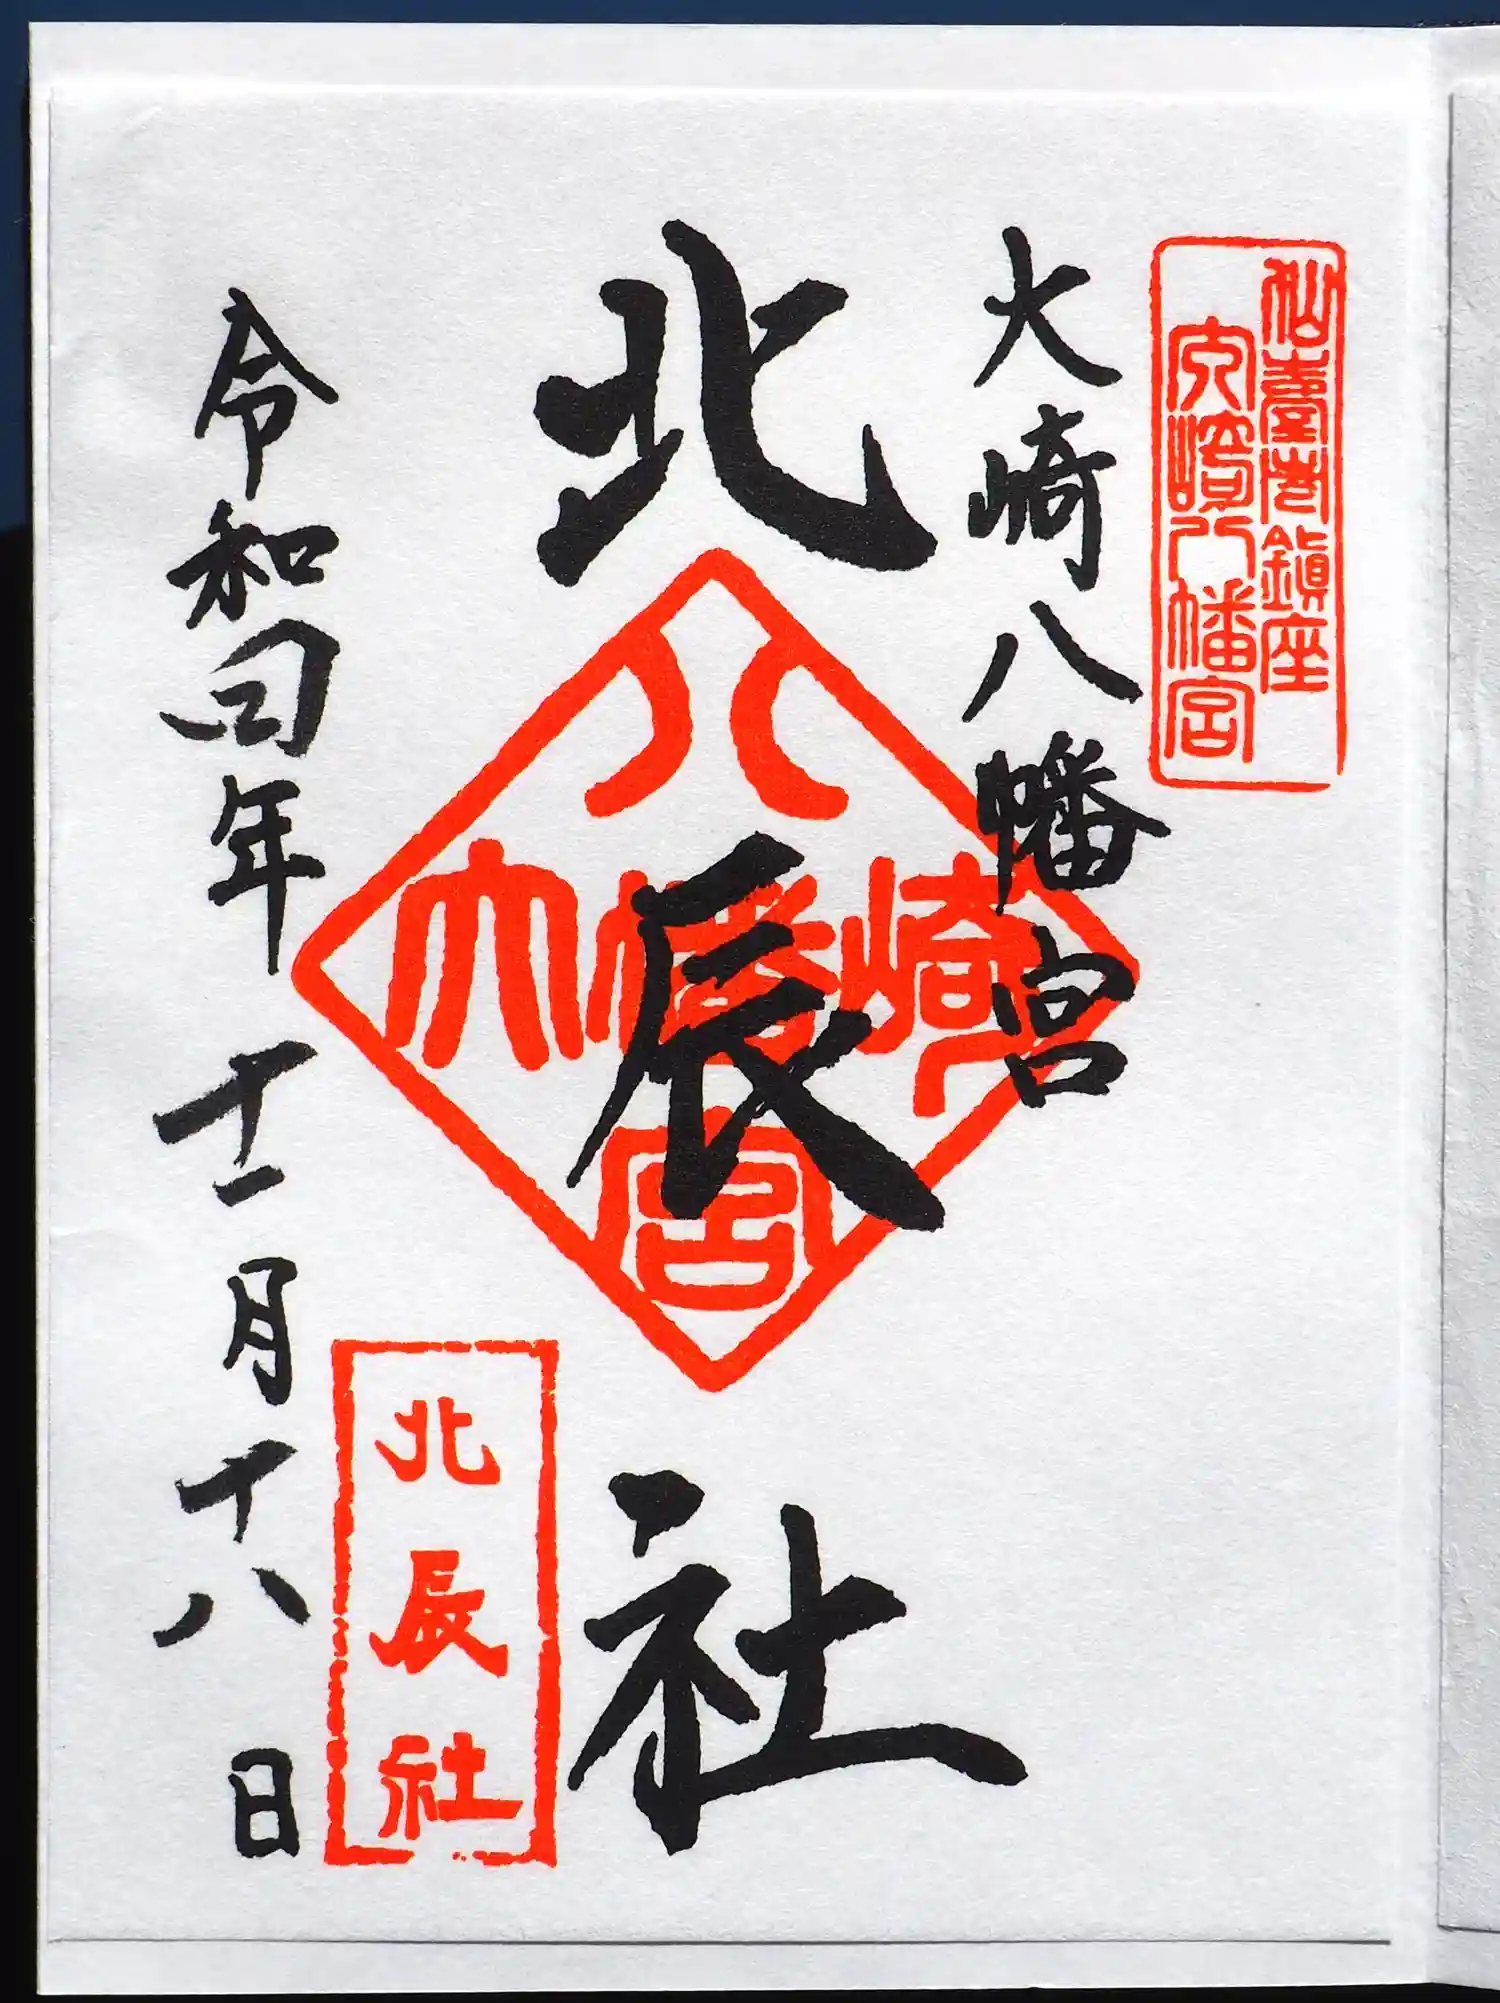 仙臺市鎮座
大崎八幡宮
大崎八幡宮
北辰社
大崎八幡宮
北辰社
令和四年十一月十八日